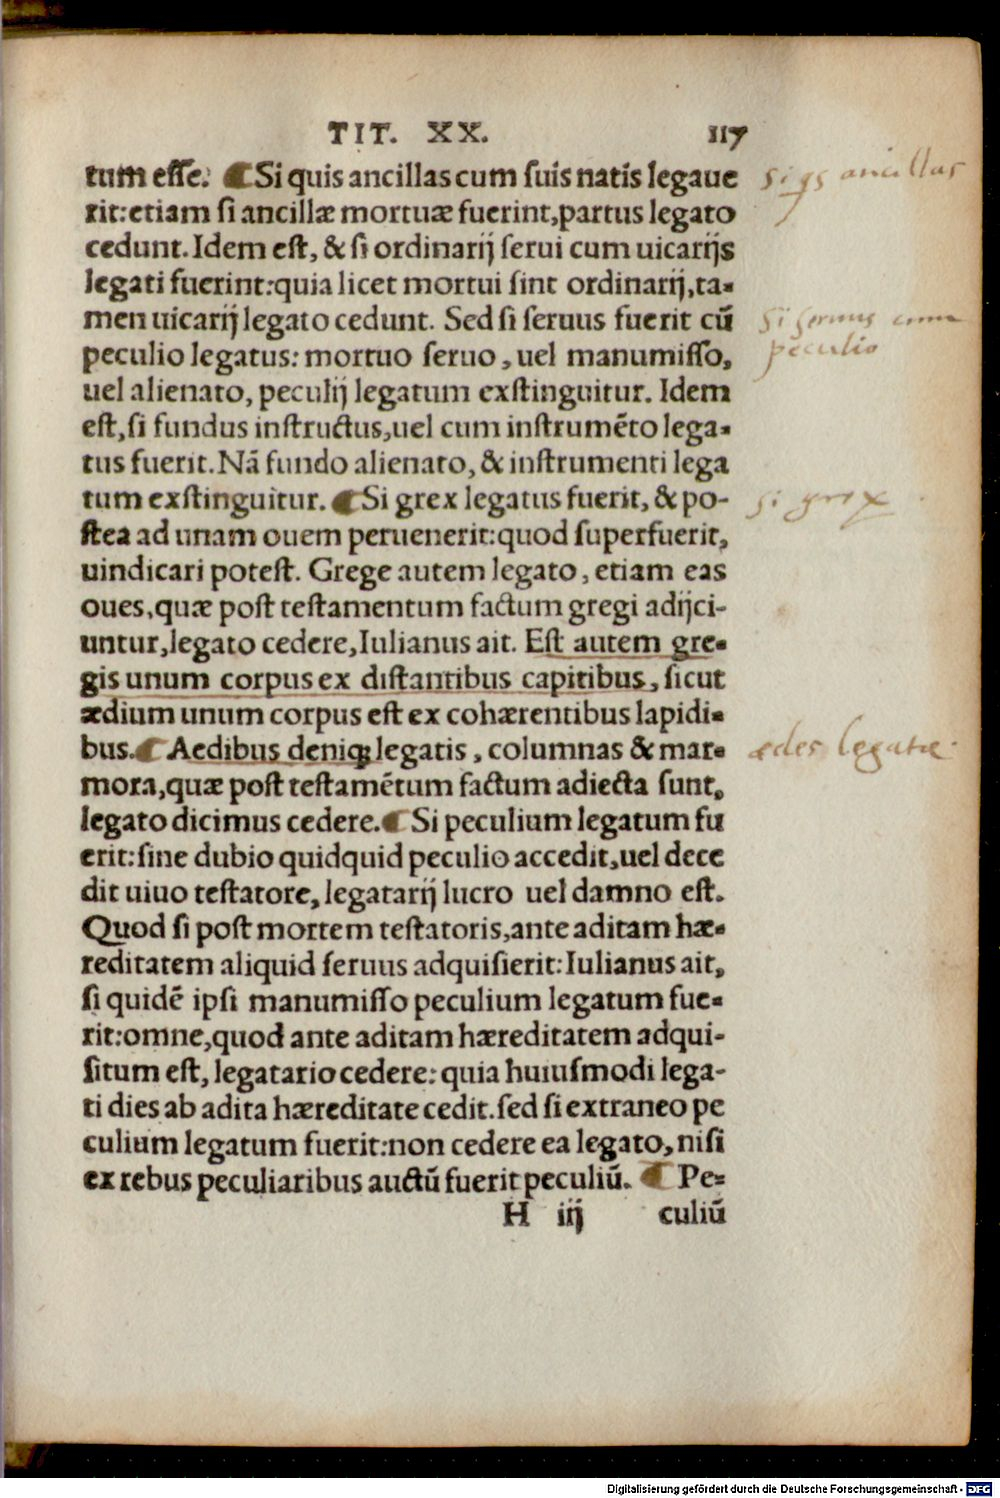 TIT. XX. 117
tum esse. ¶ Si quis ancillas cum suis natis legaue
rit:etiam si ancillæ mortuæ fuerint,partus legato
cedunt. Idem est, & si ordinarij serui cum uicarijs
legati fuerint:quia licet mortui sint ordinarij,ta-
men uicarij legato cedunt. Sed si seruus fuerit cū
peculio legatus: mortuo seruo, uel manumisso,
uel alienato, peculij legatum exstinguitur. Idem
est,si fundus instructus,uel cum instrumēto lega-
tus fuerit. Nā fundo alienato, & instrumenti lega
tum exstinguitur. ¶ Si grex legatus fuerit, & po-
stea ad unam ouem peruenerit:quod superfuerit,
uindicari potest. Grege autem legato, etiam eas
oues,quæ post testamentum factum gregi adijci-
untur,legato cedere,Iulianus ait. Est autem gre-
gis unum corpus ex distantibus capitibus, sicut
ædium unum corpus est ex cohærentibus lapidi-
bus. ¶ Aedibus deniq; legatis, columnas & mar-
mora,quæ post testamētum factum adiecta sunt,
legato dicimus cedere. ¶ Si peculium legatum fu
erit:sine dubio quidquid peculio accedit,uel dece
dit uiuo testatore, legatarij lucro uel damno est.
Quod si post mortem testatoris,ante aditam hæ-
reditatem aliquid seruus adquisierit:Iulianus ait,
si quidē ipsi manumisso peculium legatum fue-
rit:omne,quod ante aditam hæreditatem adqui-
situm est, legatario cedere: quia huiusmodi lega-
ti dies ab adita hæreditate cedit. sed si extraneo pe
culium legatum fuerit:non cedere ea legato, nisi
ex rebus peculiaribus auctū fuerit peculiū. ¶ Pe-
H iij culiū
si qs ancillas
si seruus cum
peculio
si grex
ædes legatæ
Digitalisierung gefördert durch die Deutsche Forschungsgemeinschaft - DFG